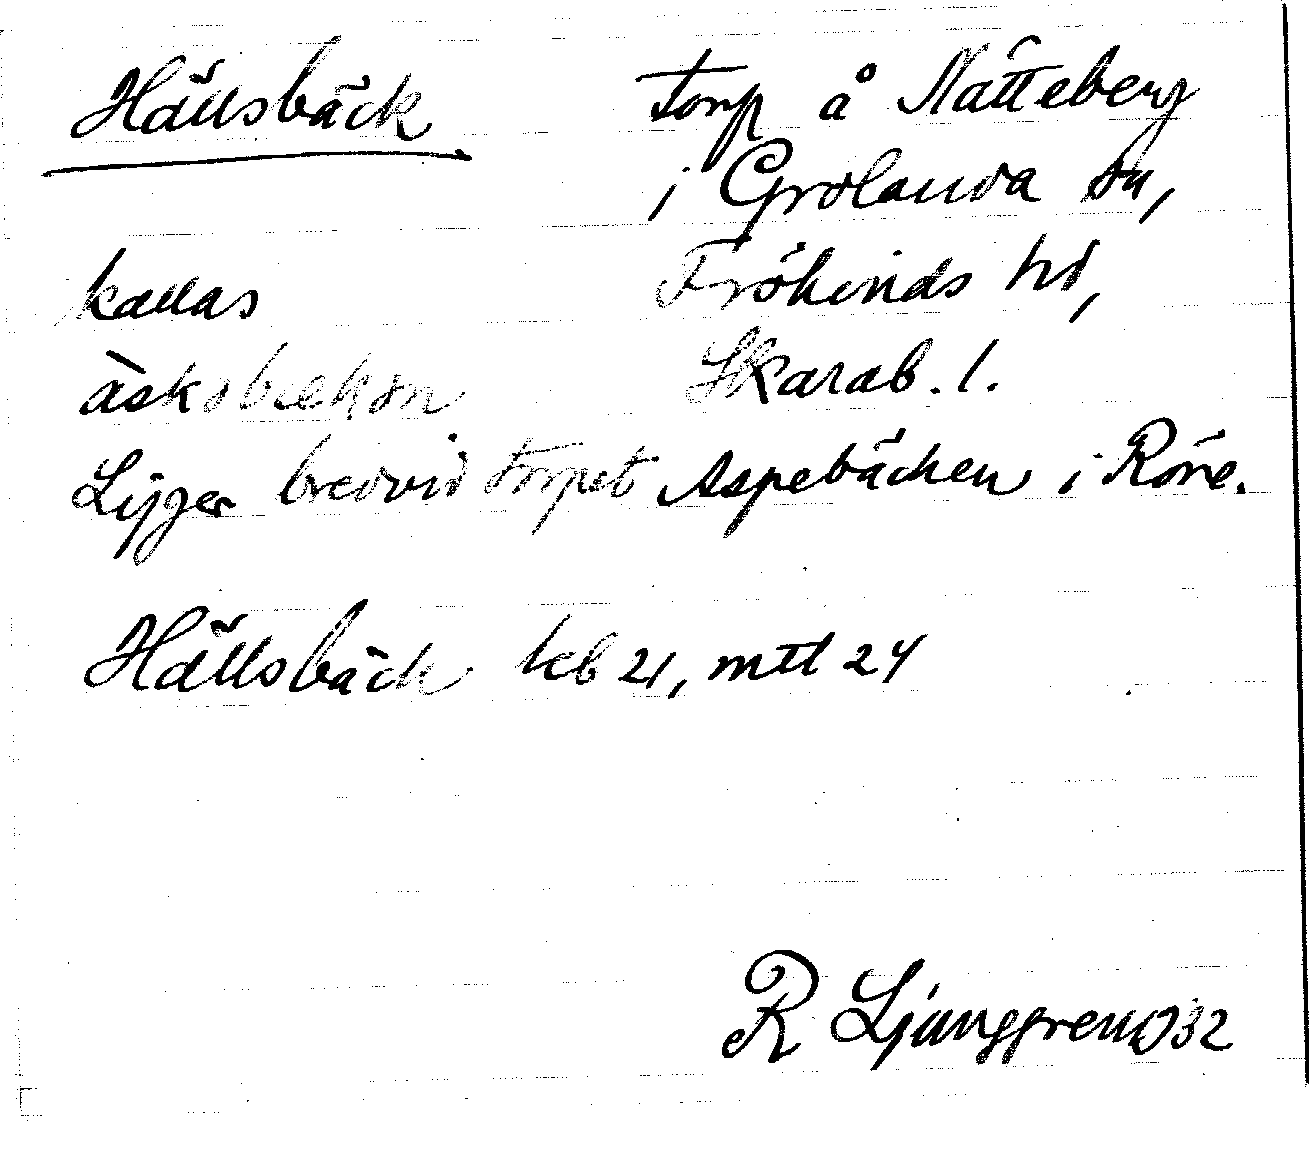 Hällsbäck torp å Nätteberg
i Grolanda sn,
kallas Frökinds hd,
äskobækön Skarab. l.
Ligger bredvid torpet Aspebäcken i Röre.
Hällsbäck kb 21, mtl 24
R Ljunggren 1932